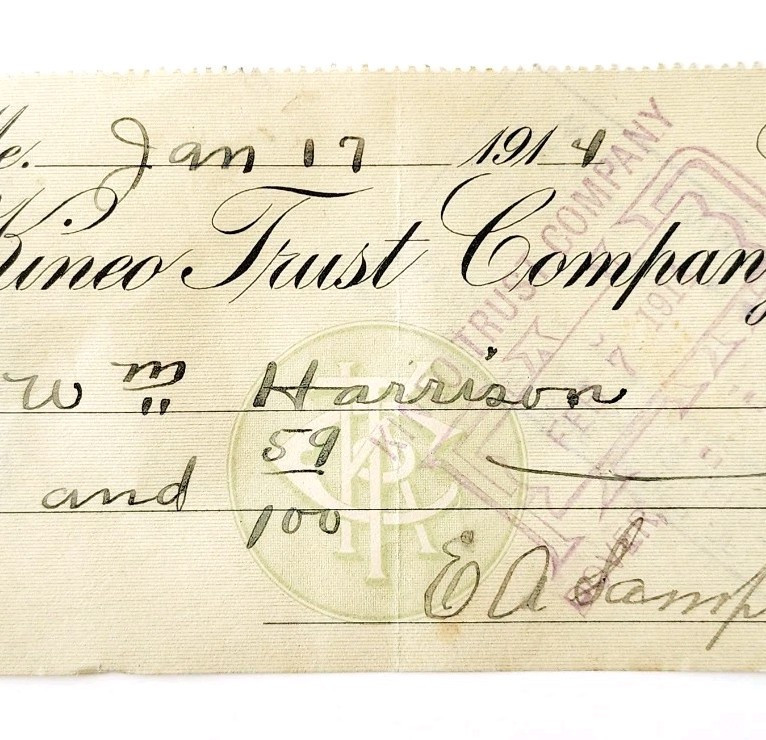 e. Jan 17 1914
Kineo Trust Company
Wm Harrison
and 59/100
E A Samp
KINEO TRUST COMPANY
FEB 7 191
DOVER,